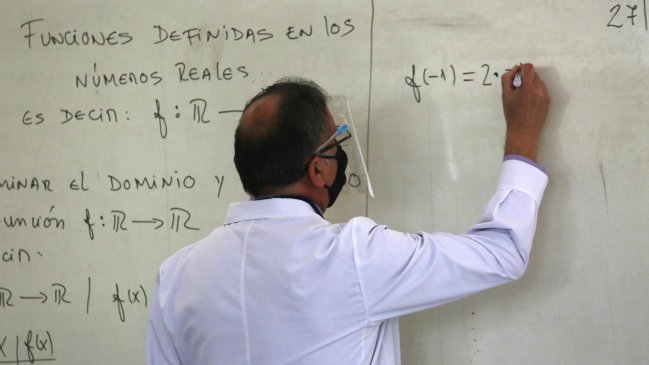 FUNCIONES DEFINIDAS EN LOS
NÚMEROS REALES
ES DECIR: f: ℝ —
MINAR EL DOMINIO Y
UNCIÓN f: ℝ → ℝ
CIR:
ℝ → ℝ | f(x)
x | f(x)
27
f(-1) = 2·